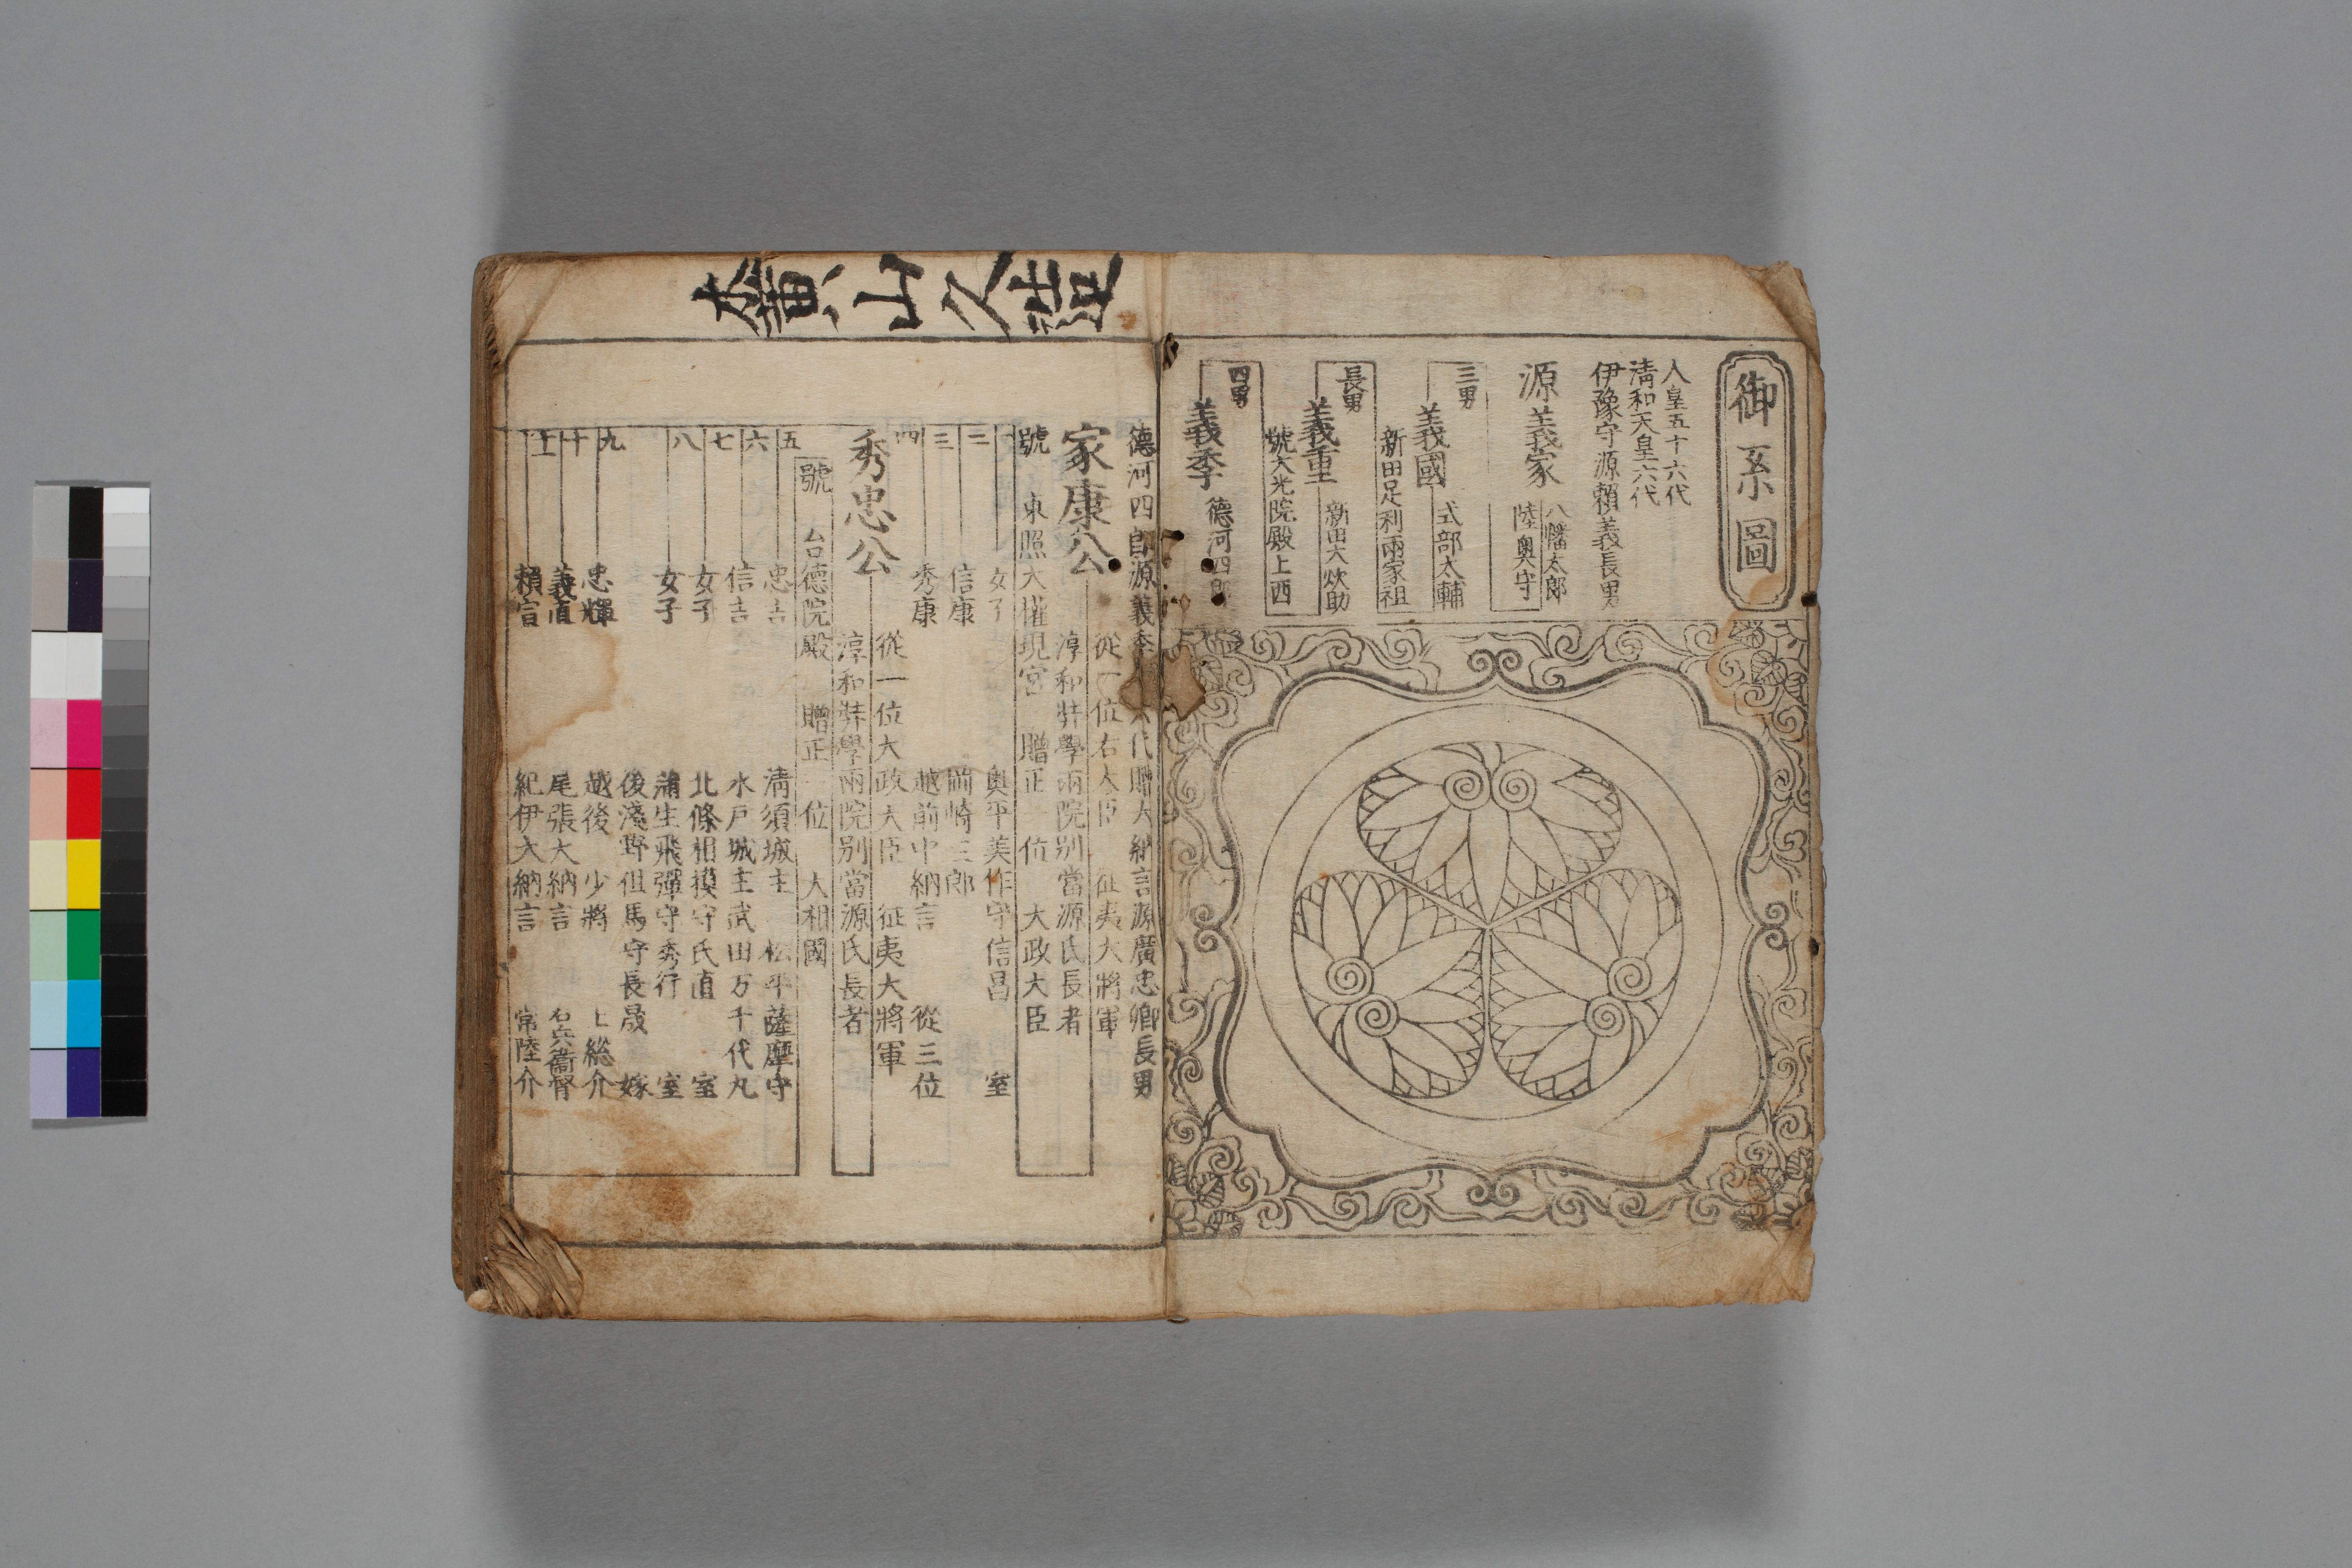 御系圖
人皇五十六代
清和天皇六代
伊豫守源頼義長男
源義家
八幡太郎
陸奥守
三男
義國
式部太輔
新田足利兩家祖
長男
義重
新田大炊助
號大光院殿上西
四男
義季
德河四郎
德河四郎源義季
代贈大納言源廣忠卿長男
家康公
從一位右大臣 征夷大將軍
淳和弉學兩院別當源氏長者
號 東照大權現宮 贈正一位 大政大臣
女子 奥平美作守信昌 室
二 信康 岡崎三郎
三 秀康 越前中納言 從三位
四
秀忠公
從一位大政大臣 征夷大將軍
淳和弉學兩院別當源氏長者
號 台德院殿 贈正一位 大相國
五 忠吉 清須城主 松平薩摩守
六 信吉 水戸城主 武田万千代丸
七 女子 北條相摸守氏直 室
八 女子 蒲生飛彈守秀行 室
後淺野但馬守長晟 嫁
九 忠輝 越後少將 上総介
十 義直 尾張大納言 右兵衞督
十一 頼宣 紀伊大納言 常陸介